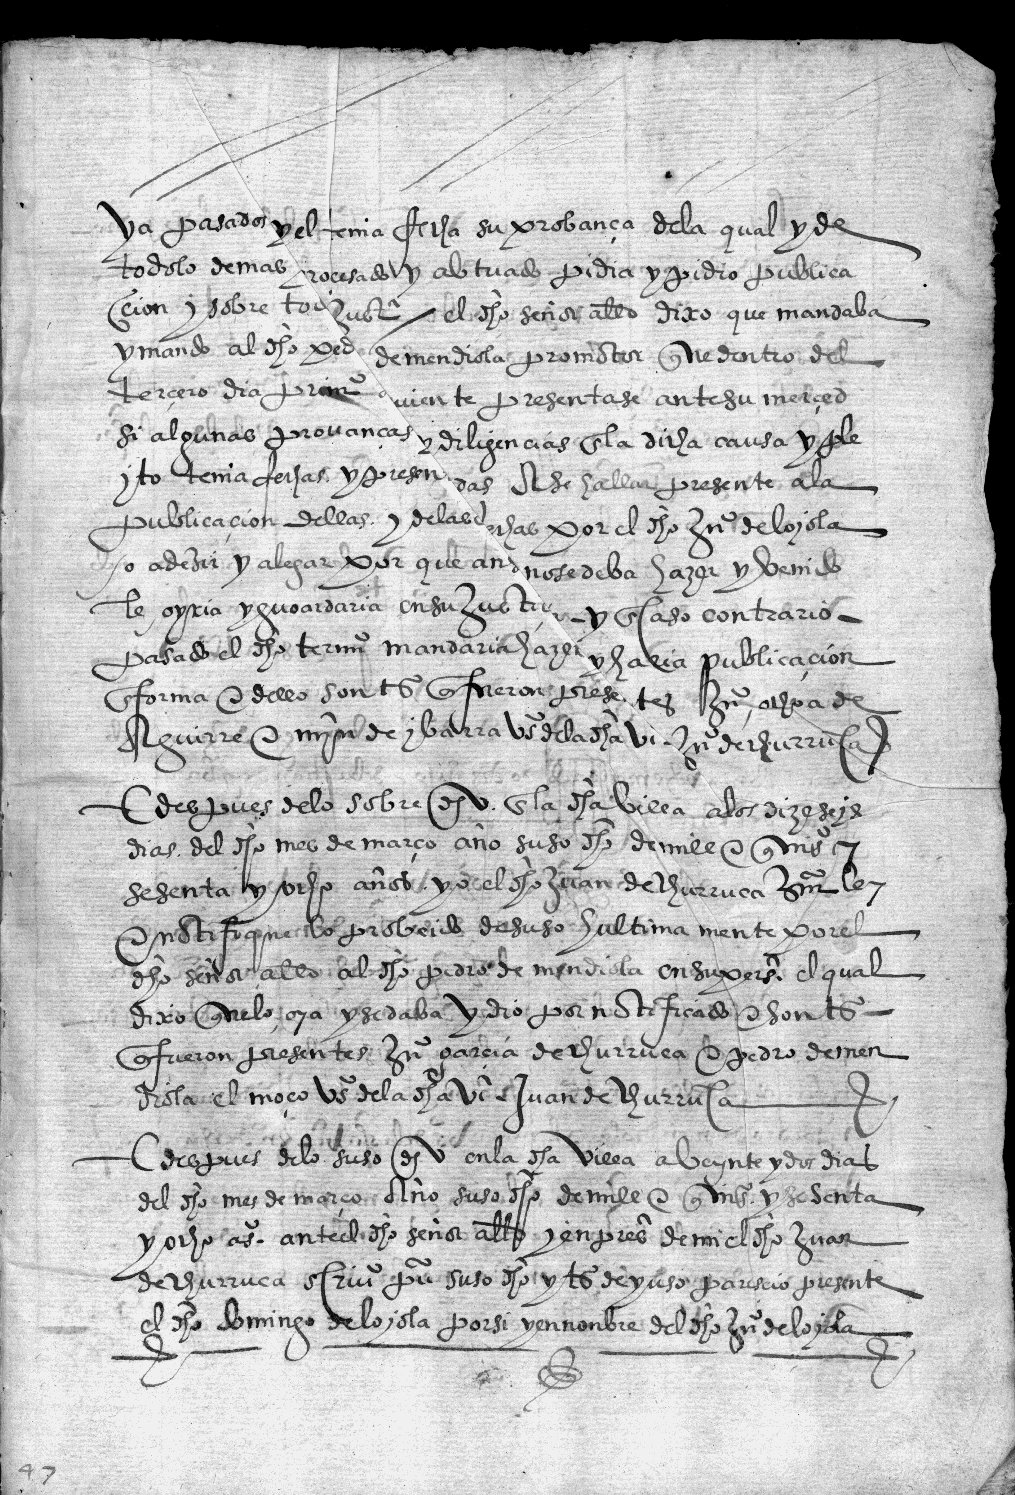 ya pasados y el tenia fecha su probança dela qual y de
todolo demas procesado y abtuado pidia y pidio publica
cion y sobre todo justª el dho señor allde dixo que mandaba
y mando al dho pedº de mendiola promotor que dentro del
terçero dia primº viente presentase ante su merçed
si algunas provanças y diligencias en la dicha causa y ple
yto tenia fechas y presen das se hallar presente a la
publicaçion dellas y delas dhas por el dho juº de loyola
o a dezir y alegar por que an nosedeba hazer y venido
le oyria y guardaria en su justi y en caso contrario
pasado el dho termº mandaria hazer y haria publicaçion
en forma e dello son tsº que fueron prese tes juº ochoa de
Aguirre e mjn de ybarra vsº dela dha vi juº de churruca
E despues delo sobre dho en la dha villa a los diz e seys
dias del dho mes de março año suso dho de mill e quisº
sesenta y ocho años yo el dho juan de churruca srnº ley
e notifique lo probeido desuso hultima mente por el
dho señor allde al dho pedro de mendiola en su persª el qual
dixo que lo oya y se daba y dio por notificado e son tsº
que fueron presentes juº garcia de churruca e pedro de men
diola el moço vsº dela dha viª Juan de churruca
E despues delo suso dho en la dha villa a veynte y dos dias
del dho mes de março Año suso dho de mille e quisº y sesenta
y ocho asº ante el dho señor allde y en presª de mi el dho juan
de churruca scrivº puº suso dho y tsº de yuso paresçio presente
el dho domingo de loyola por si y en nonbre del dho juº de loyola
47